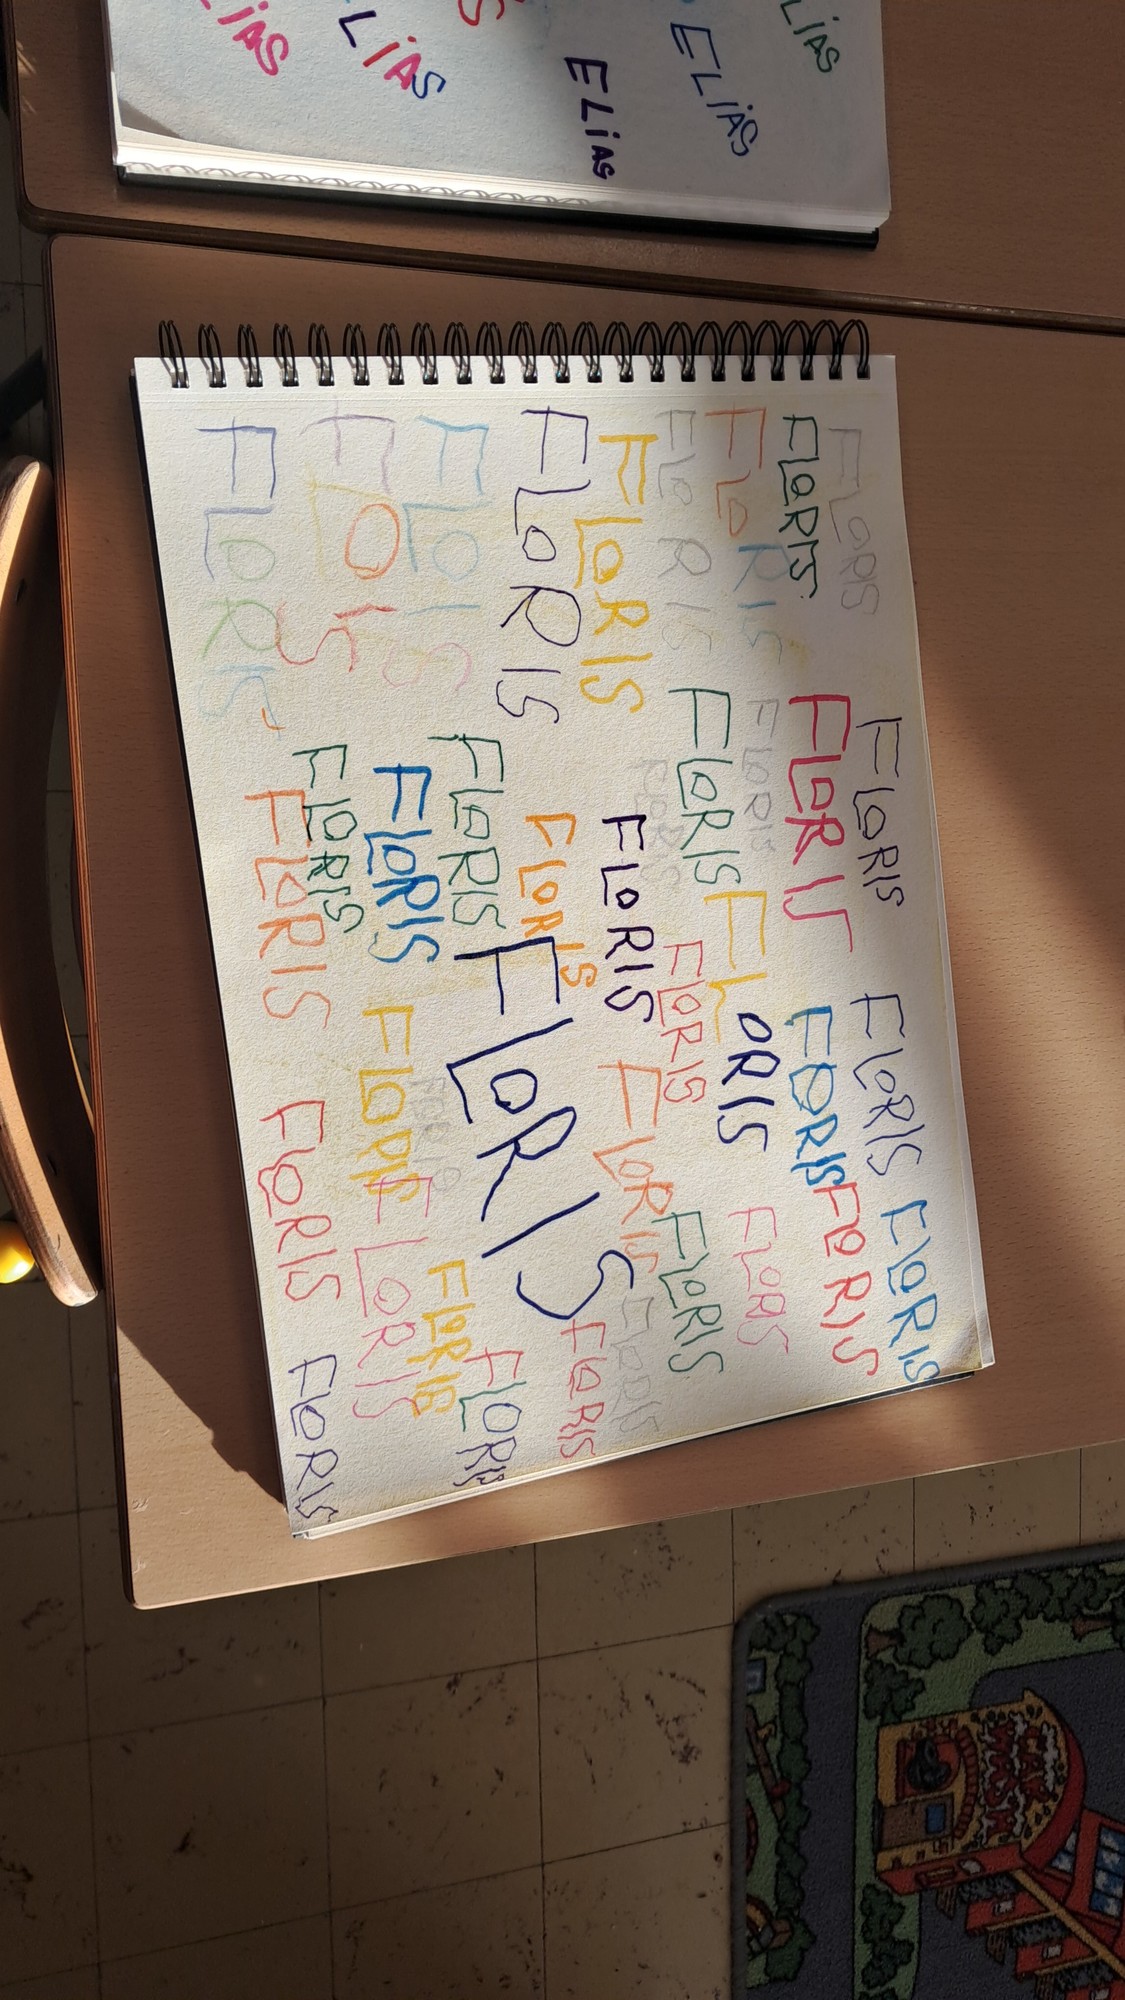 LIAS
LIAS
S
ELIAS
ELIAS
LIAS
FLORIS
FLORIS
FLORIS
FLORIS
FLORIS
FLORIS
FLORIS
FLOIS
FLOIS
FLORIS
FLORIS
FLORIS
FLORIS
FLORIS
FLORIS
FLORIS
FLORIS
FLORIS
FLORIS
FLORIS
FLORIS
FORIS
FLORIS
FLORIS
FLORIS
FLORIS
FLORIS
FLORIS
FLORIS
FLORIS
FORIS
FLORIS
FLORIS
FLORIS
FLORIS
FLORIS
FLORIS
FLORIS
CAR
WASH